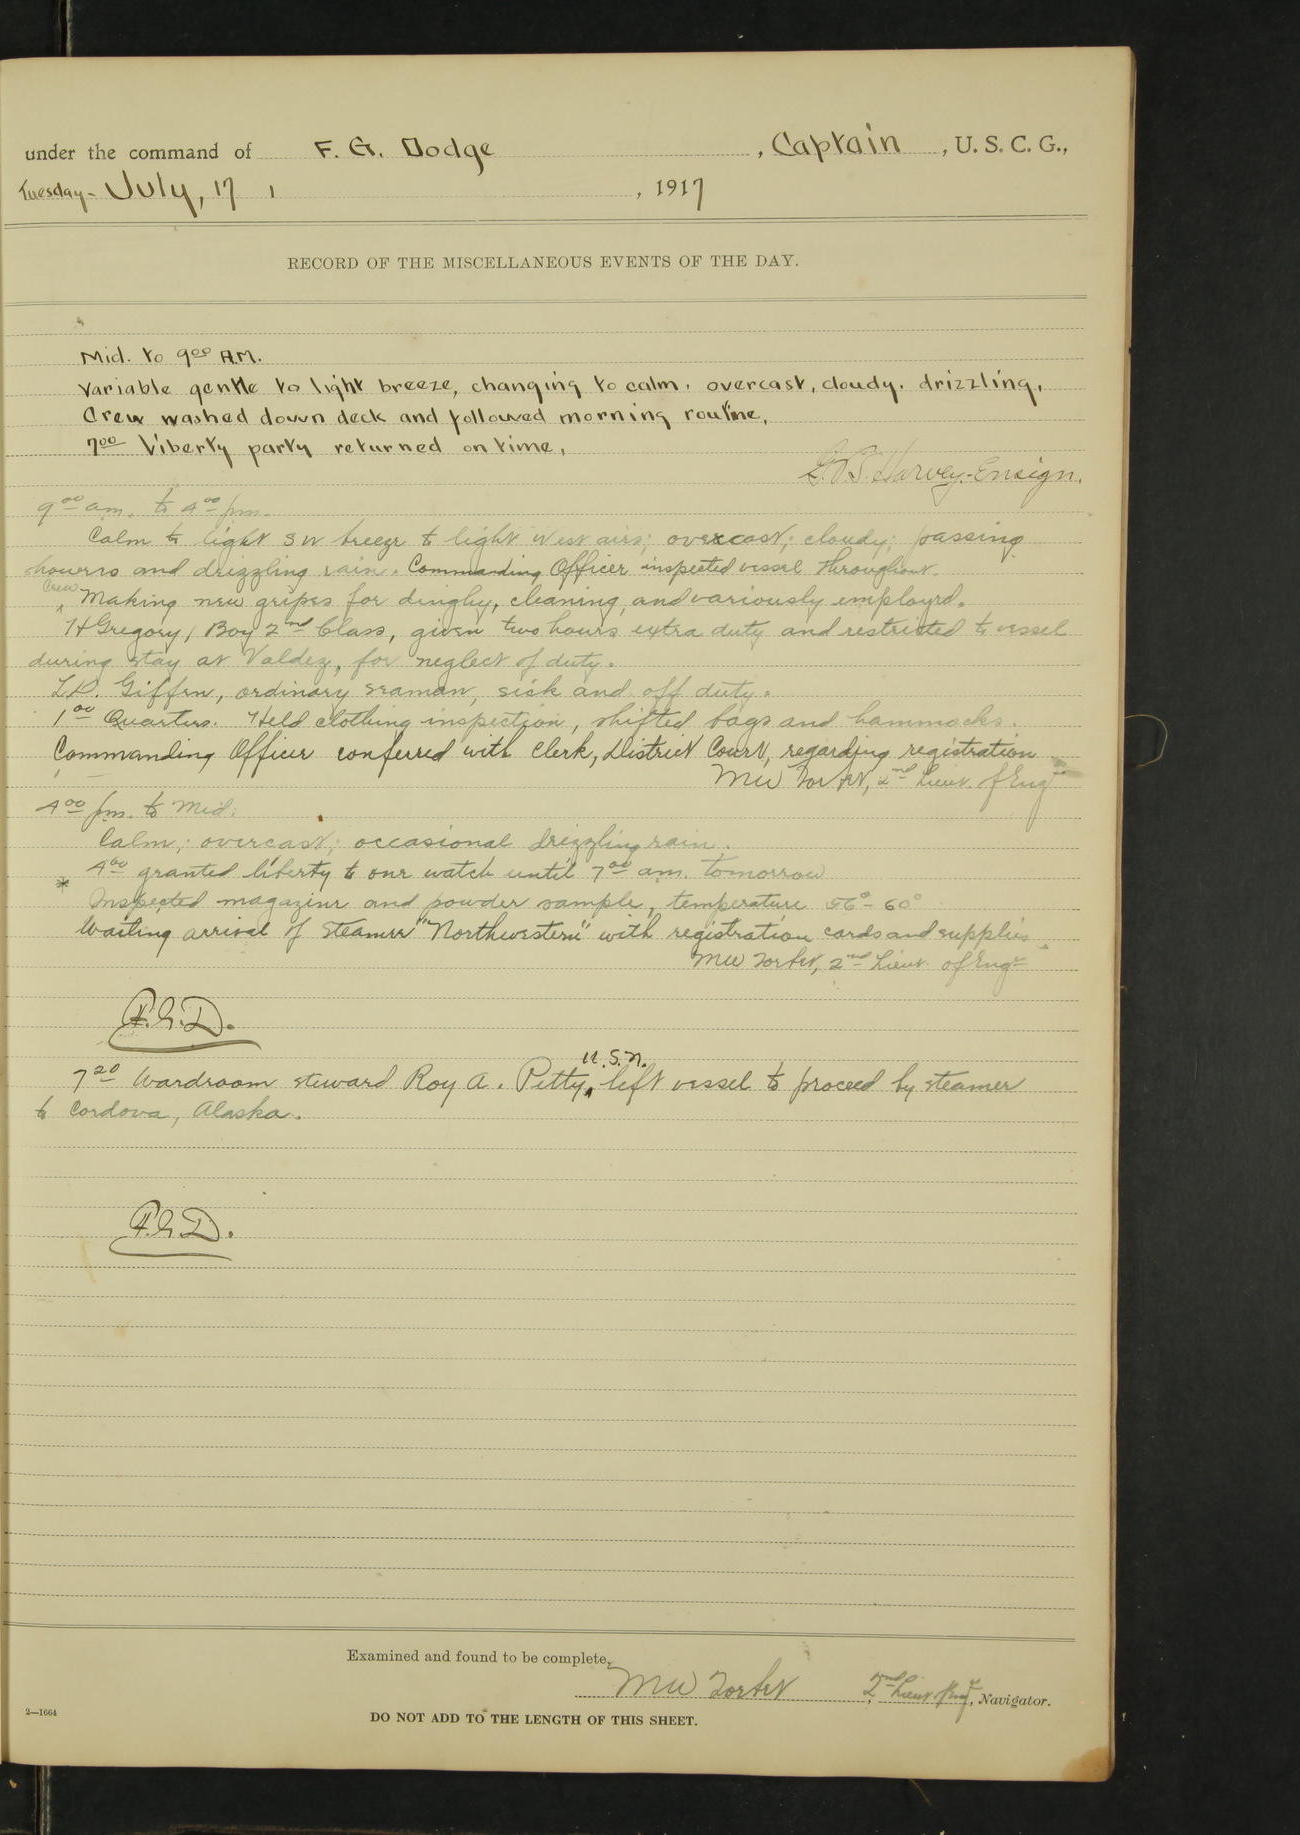 under the command of F. G. Dodge, Captain, U. S. C. G.,
Tuesday - July, 17, 1917
RECORD OF THE MISCELLANEOUS EVENTS OF THE DAY.
Mid. to 9⁰⁰ A.M.
Variable gentle to light breeze, changing to calm. overcast, cloudy. drizzling.
Crew washed down deck and followed morning routine.
7⁰⁰ Liberty party returned on time.
Harvey - Ensign.
9⁰⁰ am. to 4⁰⁰ pm.
Calm to light SW breeze to light West airs; overcast; cloudy; passing
howers and drizzling rain. Commanding Officer inspected vessel throughout.
Crew
Making new gripes for dinghy, cleaning, and variously employed.
H Gregory, Boy 2nd Class, given two hours extra duty and restricted to vessel
during stay at Valdez, for neglect of duty.
L.D. Giffen, ordinary seaman, sick and off duty.
1⁰⁰ Quarters. Held clothing inspection, shifted bags and hammocks.
Commanding Officer conferred with Clerk, District Court, regarding registration
MW Torbet, 2nd Lieut. of Eng
4⁰⁰ pm. to Mid:
Calm; overcast; occasional drizzling rain.
4⁰⁰ granted liberty to one watch until 7⁰⁰ am. tomorrow
* Inspected magazine and powder sample, temperature 56° - 60°
Waiting arrival of Steamer "Northwestern" with registration cards and supplies.
MW Torbet, 2nd Lieut. of Engr
F.G.D.
U.S.N.
7²⁰ Wardroom steward Roy A. Petty, left vessel to proceed by steamer
to Cordova, Alaska.
F.G.D.
Examined and found to be complete,
MW Torbet, 2nd Lieut. of Eng, Navigator.
2—1664
DO NOT ADD TO THE LENGTH OF THIS SHEET.